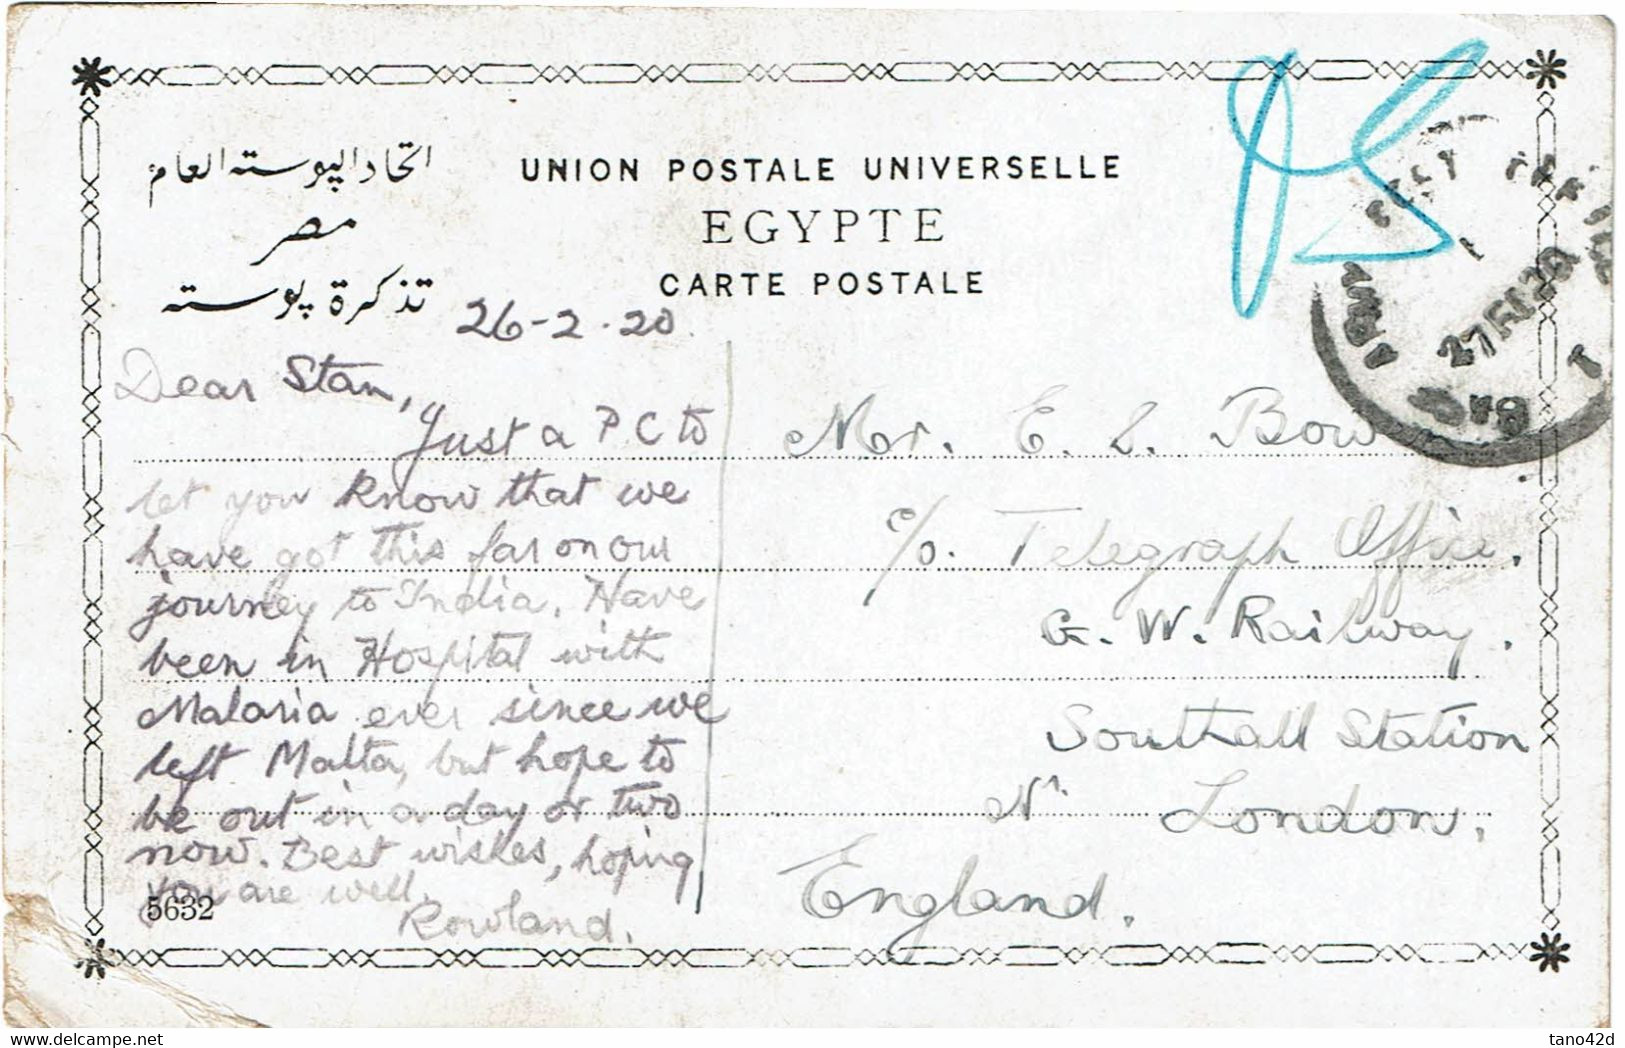 اتحاد البوسته العام
مصر
تذكرة بوسته
UNION POSTALE UNIVERSELLE
EGYPTE
CARTE POSTALE
26-2-20.
Dear Stan,
Just a P.C to
let you know that we
have got this far on our
journey to India. Have
been in Hospital with
Malaria ever since we
left Malta, but hope to
be out in a day or two
now. Best wishes, hoping
you are well.
Rowland.
5632
27 FE 20
Mr. E. L.
c/o. Telegraph Office.
G. W. Railway.
Southall Station
Nr. London.
England.
delcampe.net
tano42d